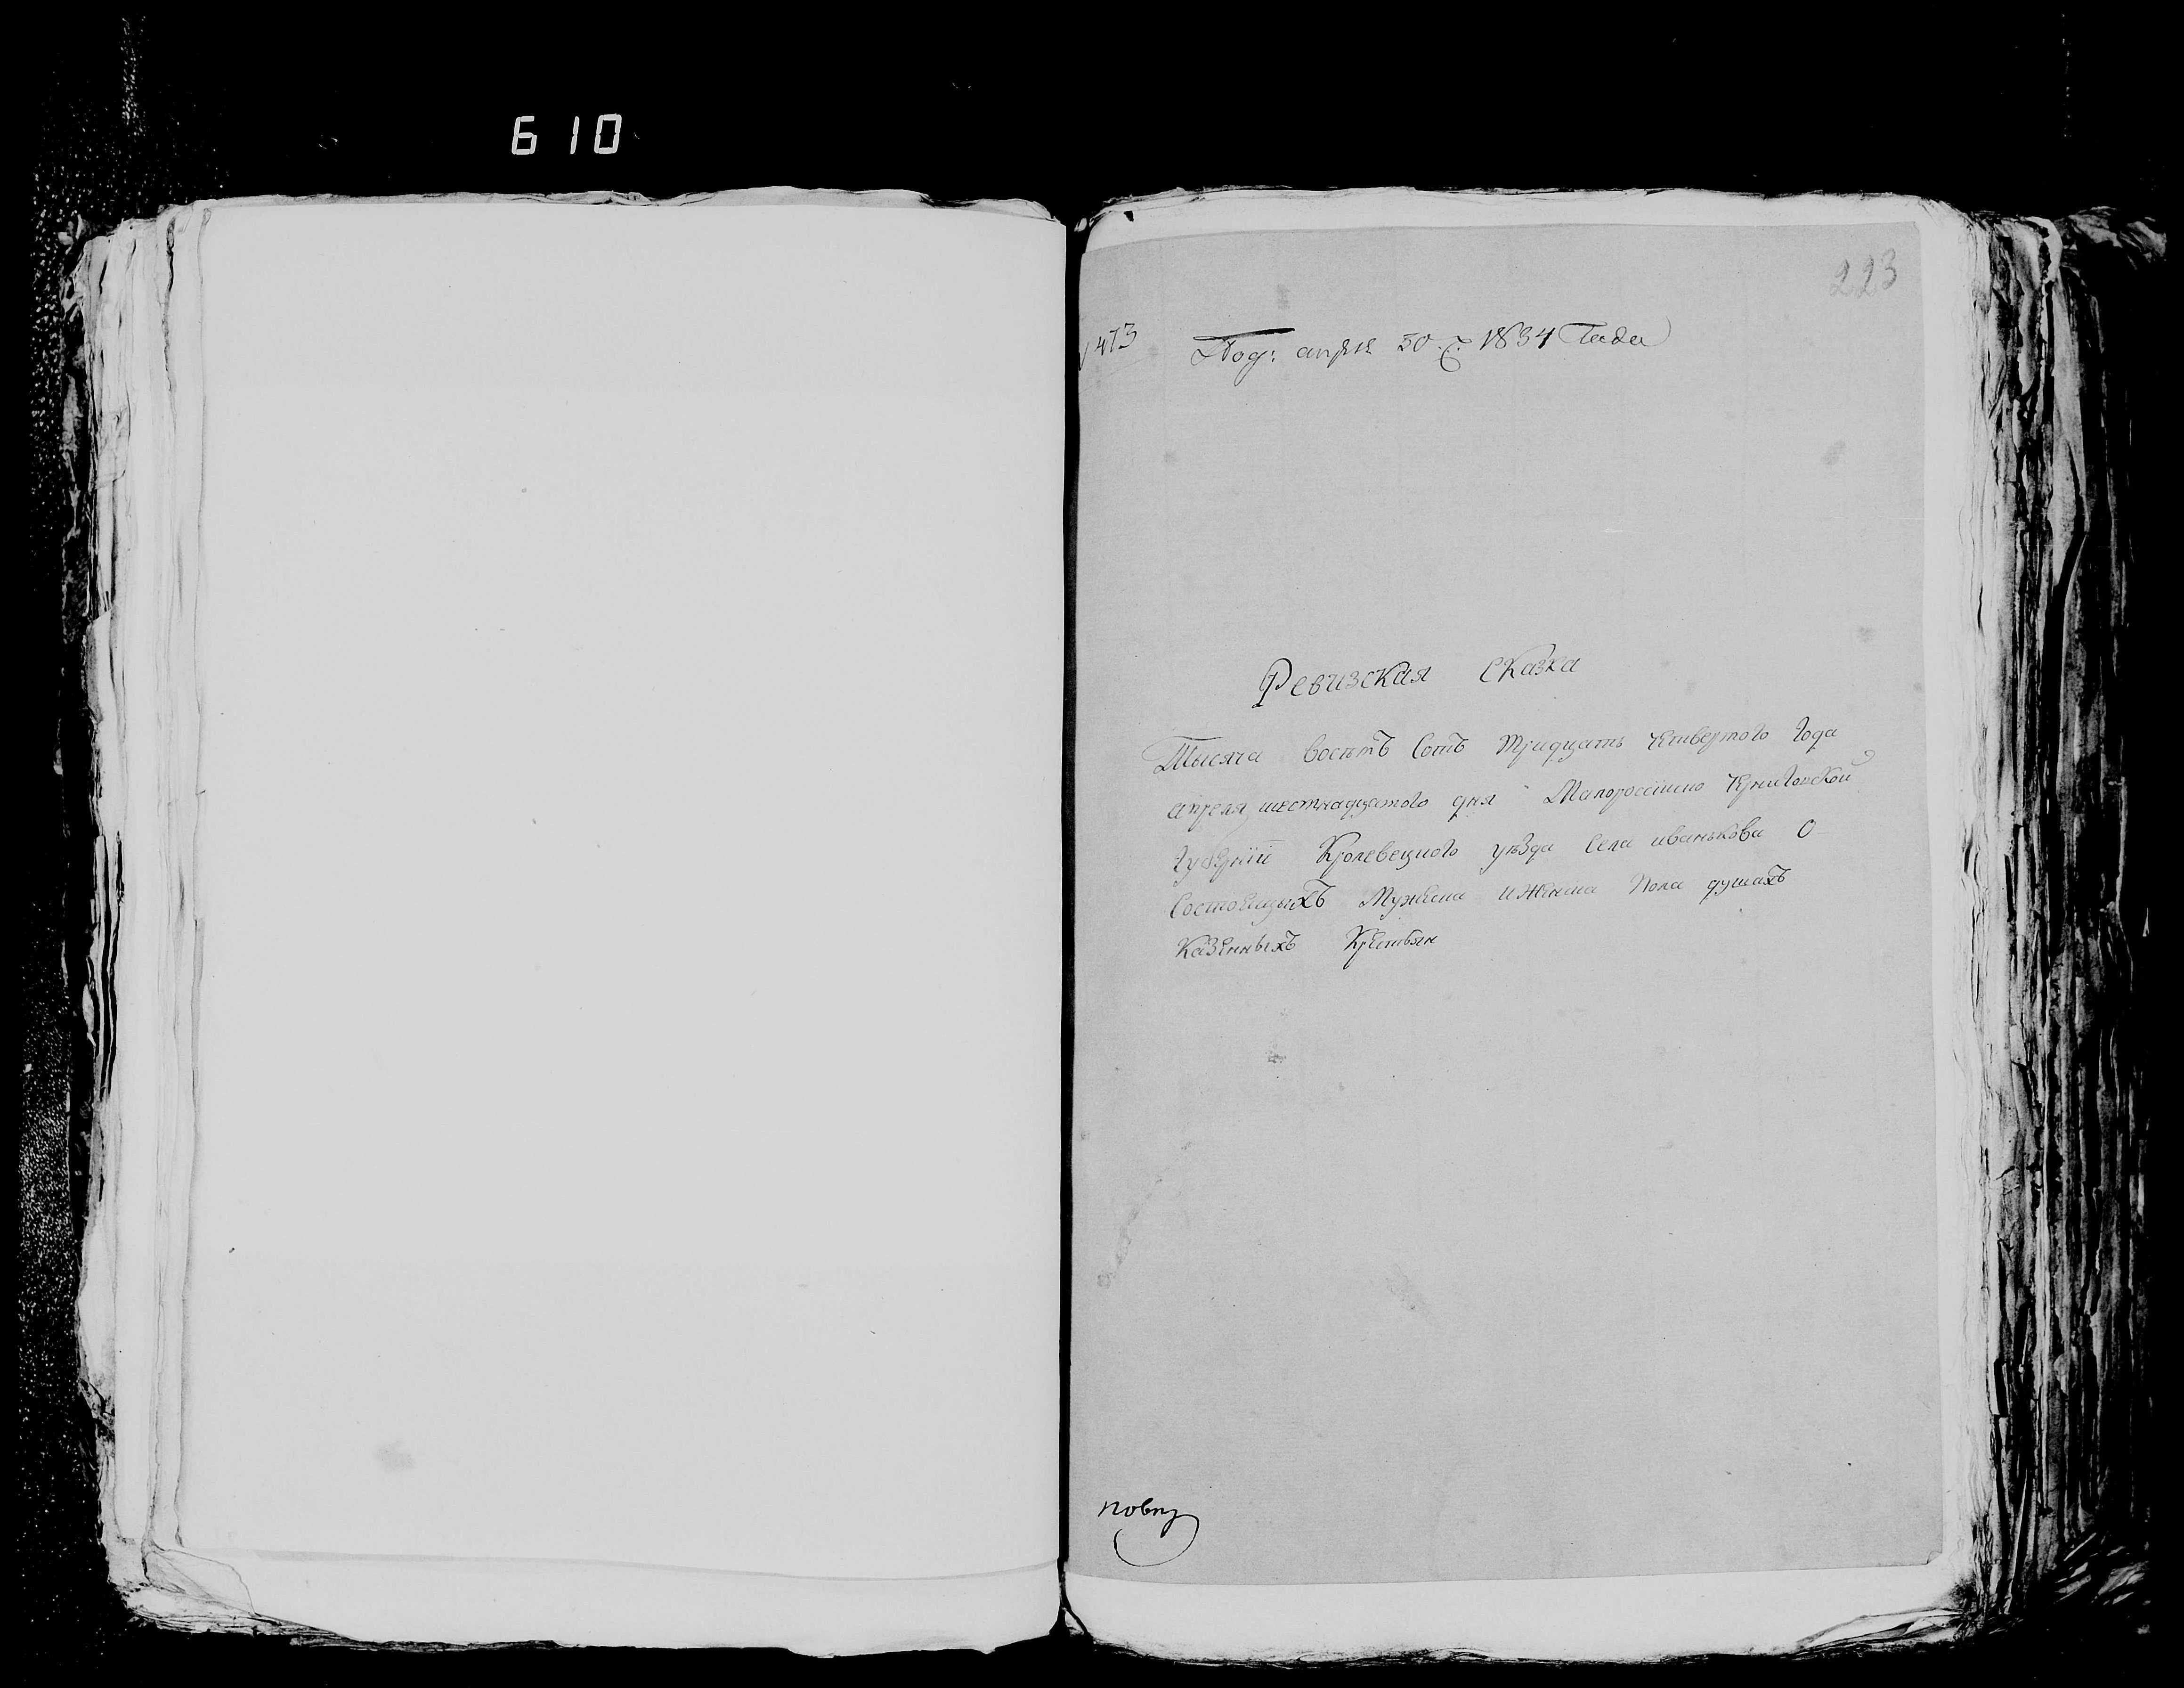 610
223
473
Под: апреля 30 г. 1834 Года
Ревизская сказка
Тысяча восемъ Сотъ тридцать четвертого года
апреля шестнадцатого дня Малоросийско Черниговской
Губернии Кролевецкого уезда Села иванькова О
Состоящихъ Мужеска и Женска Пола душахъ
Казенныхъ Крестьян